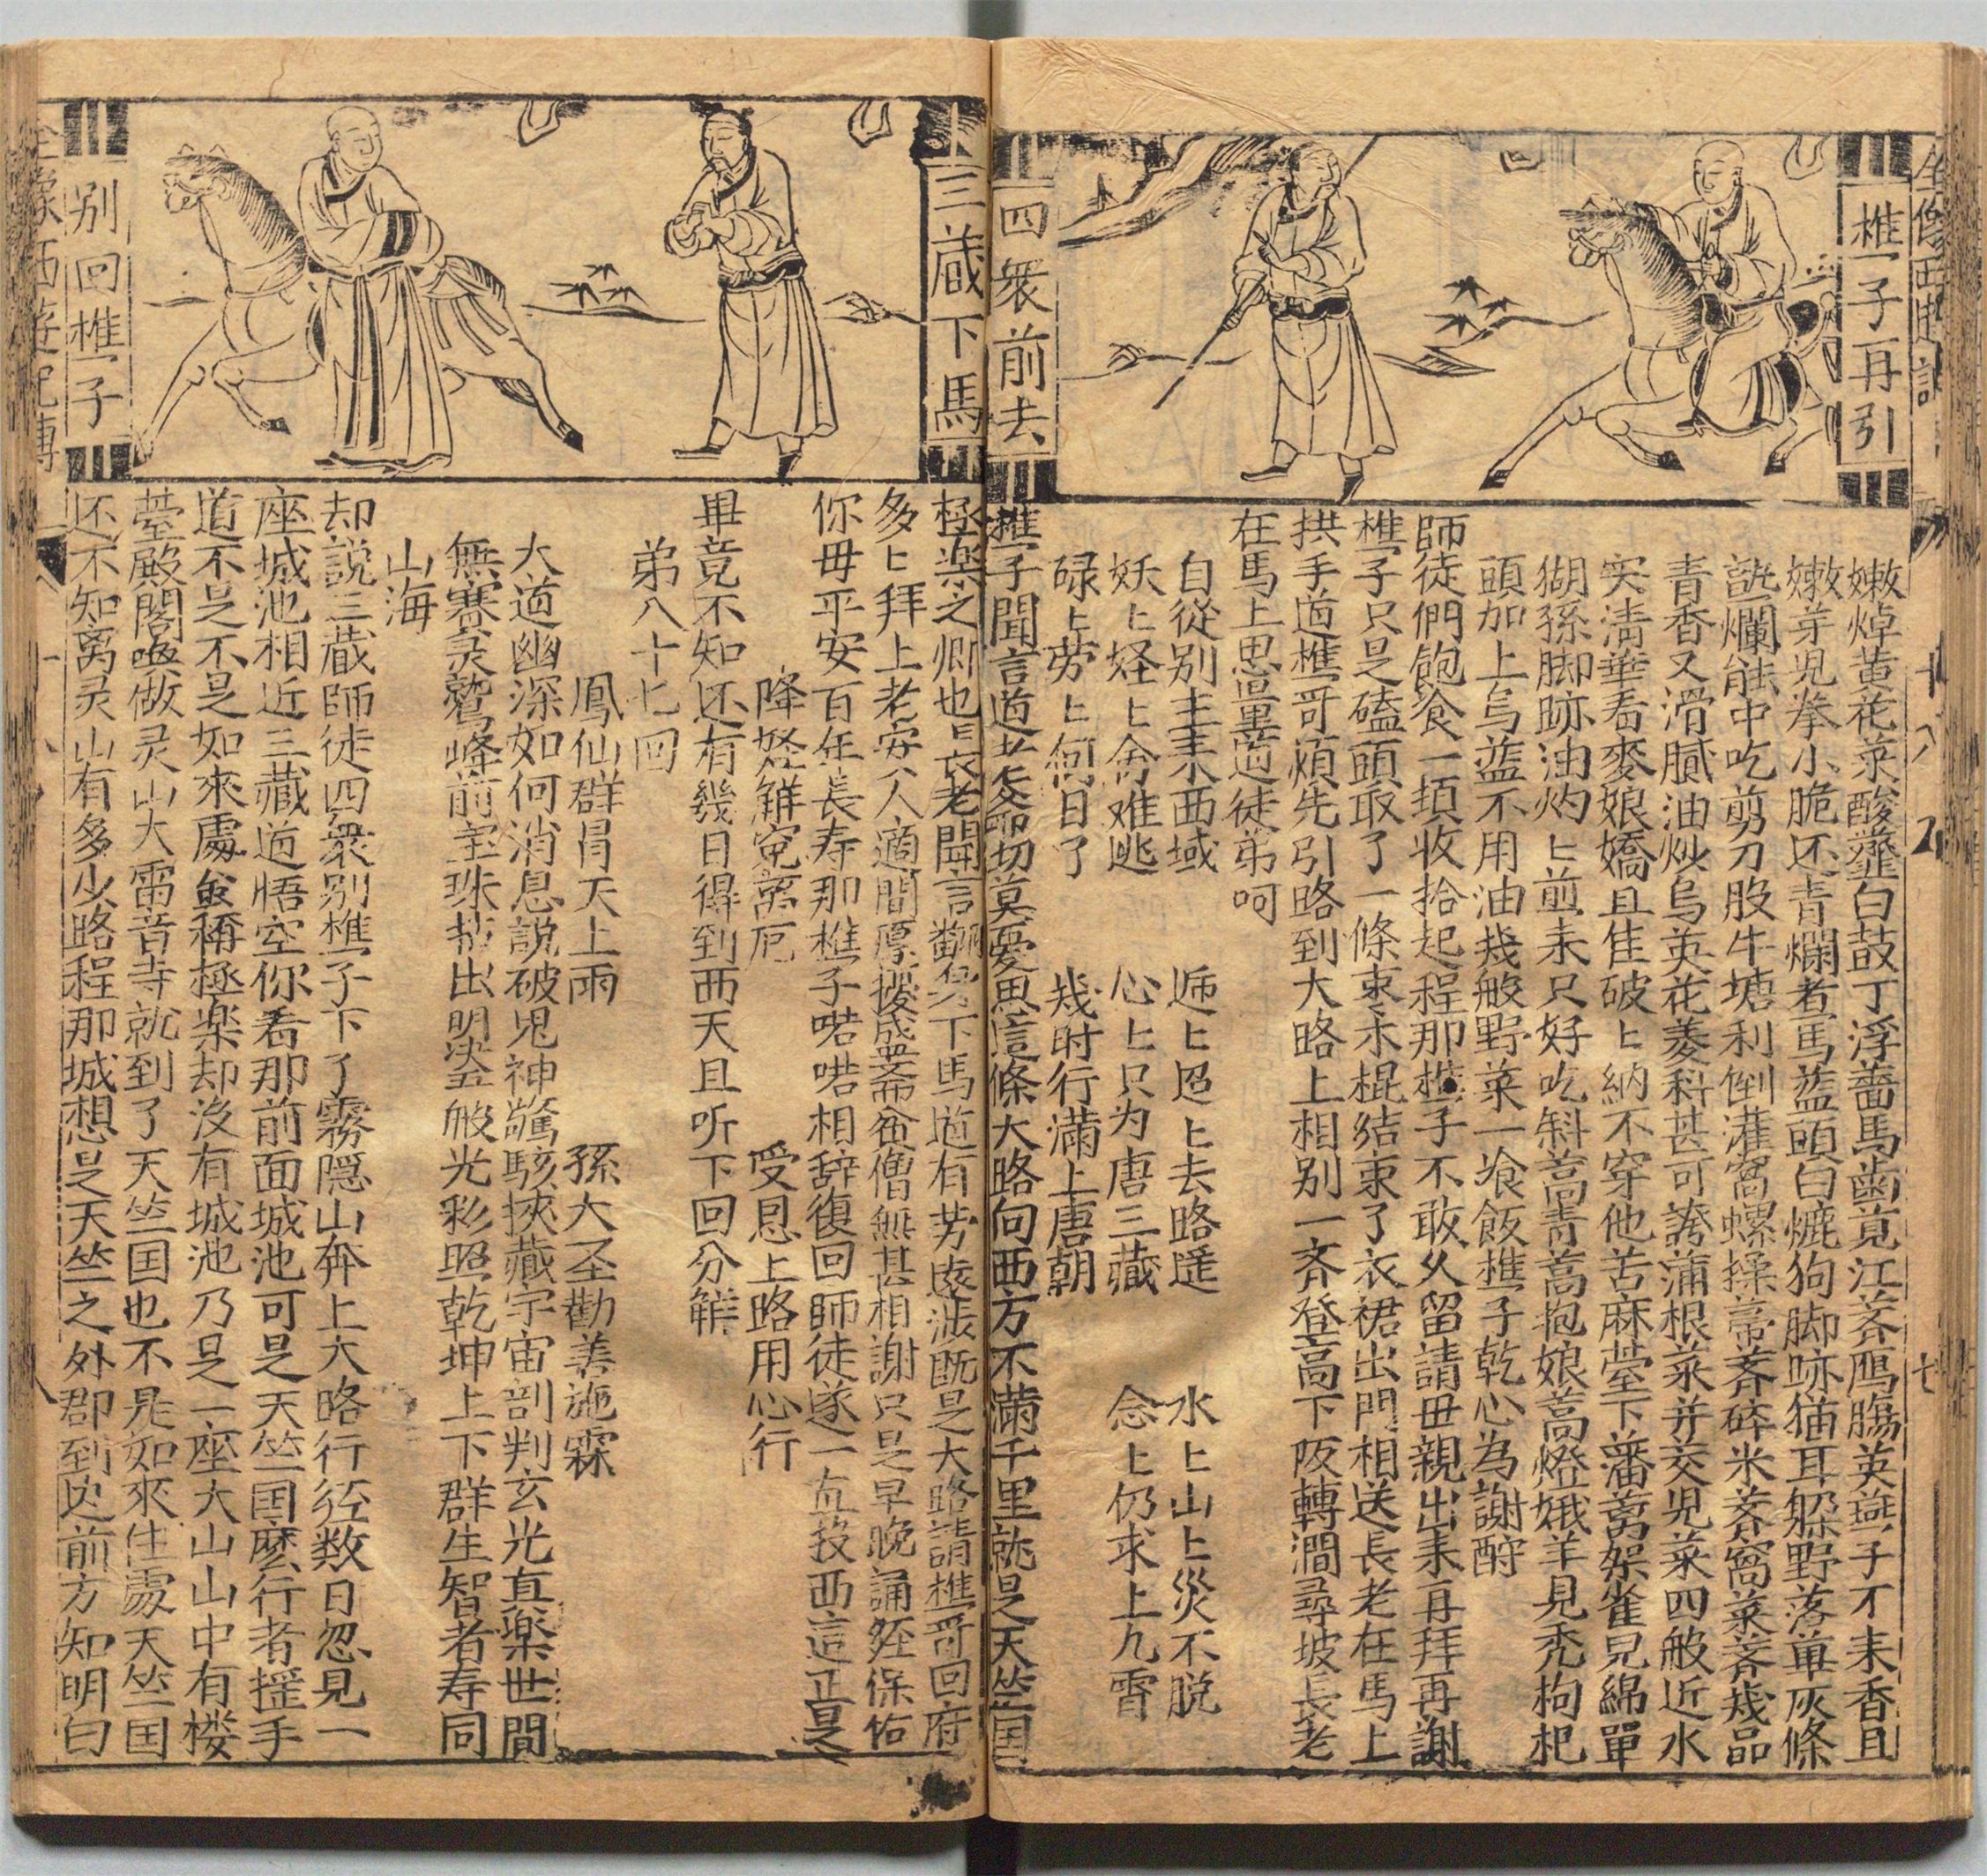 全像西遊記
樵子再引
四衆前去
嫩焯黄花菜酸虀白鼓丁浮薔馬歯莧江薺鴈膓英燕子不耒香且
嫩芽児拳小脆还青爛煮馬蓝頭白熝狗脚跡猫耳躲野落蓽灰條
熟爛能中吃剪刀股牛塘利倒灌窩螺操箒薺碎米薺窩菜薺幾品
青香又滑膩油炒烏英花菱科甚可誇蒲根菜并茭児菜四般近水
实清華看麥娘嬌且佳破〻納不穿他苦麻薹下藩萬架雀児綿單
猢猻脚跡油灼〻煎耒只好吃斜蒿青蒿抱娘蒿燈娥羊見禿枸杞
頭加上烏蓝不用油幾般野菜一飡飯樵子乾心為謝酧
師徒們飽飡一頓收拾起程那樵子不敢久留請母親出耒再拜再謝
樵子只是磕頭取了一條束木棍結束了衣裙出門相送長老在馬上
拱手道樵哥煩先引路到大路上相别一齐登高下阪轉澗尋坡長老
在馬上思量道徒弟呵
自從别主耒西域　逓〻迢〻去路遥　水〻山〻災不脱
妖〻怪〻命难逃　心〻只为唐三藏　念〻仍求上九霄
碌〻劳〻何日了　幾时行滿上唐朝
樵子聞言道老爷切莫憂思這條大路向西方不滿千里就是天竺国
三藏下馬
别回樵子
極楽之鄉也長老聞言翻身下馬道有劳遠涉既是大路請樵哥回府
多〻拜上老安人適間厚擾盛斋贫僧無甚相謝只是早晚誦經保佑
你母平安百年長寿那樵子喏喏相辞復回師徒遂一直投西這正是
降怪觧寃离厄　受恩上路用心行
畢竟不知还有幾日得到西天且听下回分觧
弟八十七回
鳳仙群冒天上雨　孫大圣勸善施霖
大道幽深如何消息說破鬼神驚駭挾藏宇宙剖判玄光真楽世間
無賽灵鷲峰前宝珠拈出明決五般光彩照乾坤上下群生智者寿同
山海
却説三蔵師徒四衆别樵子下了霧隠山奔上大路行经数日忽見一
座城池相近三蔵道悟空你看那前面城池可是天竺国麽行者摇手
道不是不是如來處虽稱極楽却没有城池乃是一座大山山中有楼
臺殿閣喚做灵山大雷音寺就到了天竺国也不是如來住處天竺国
还不知离灵山有多少路程那城想是天竺之外郡到边前方知明白